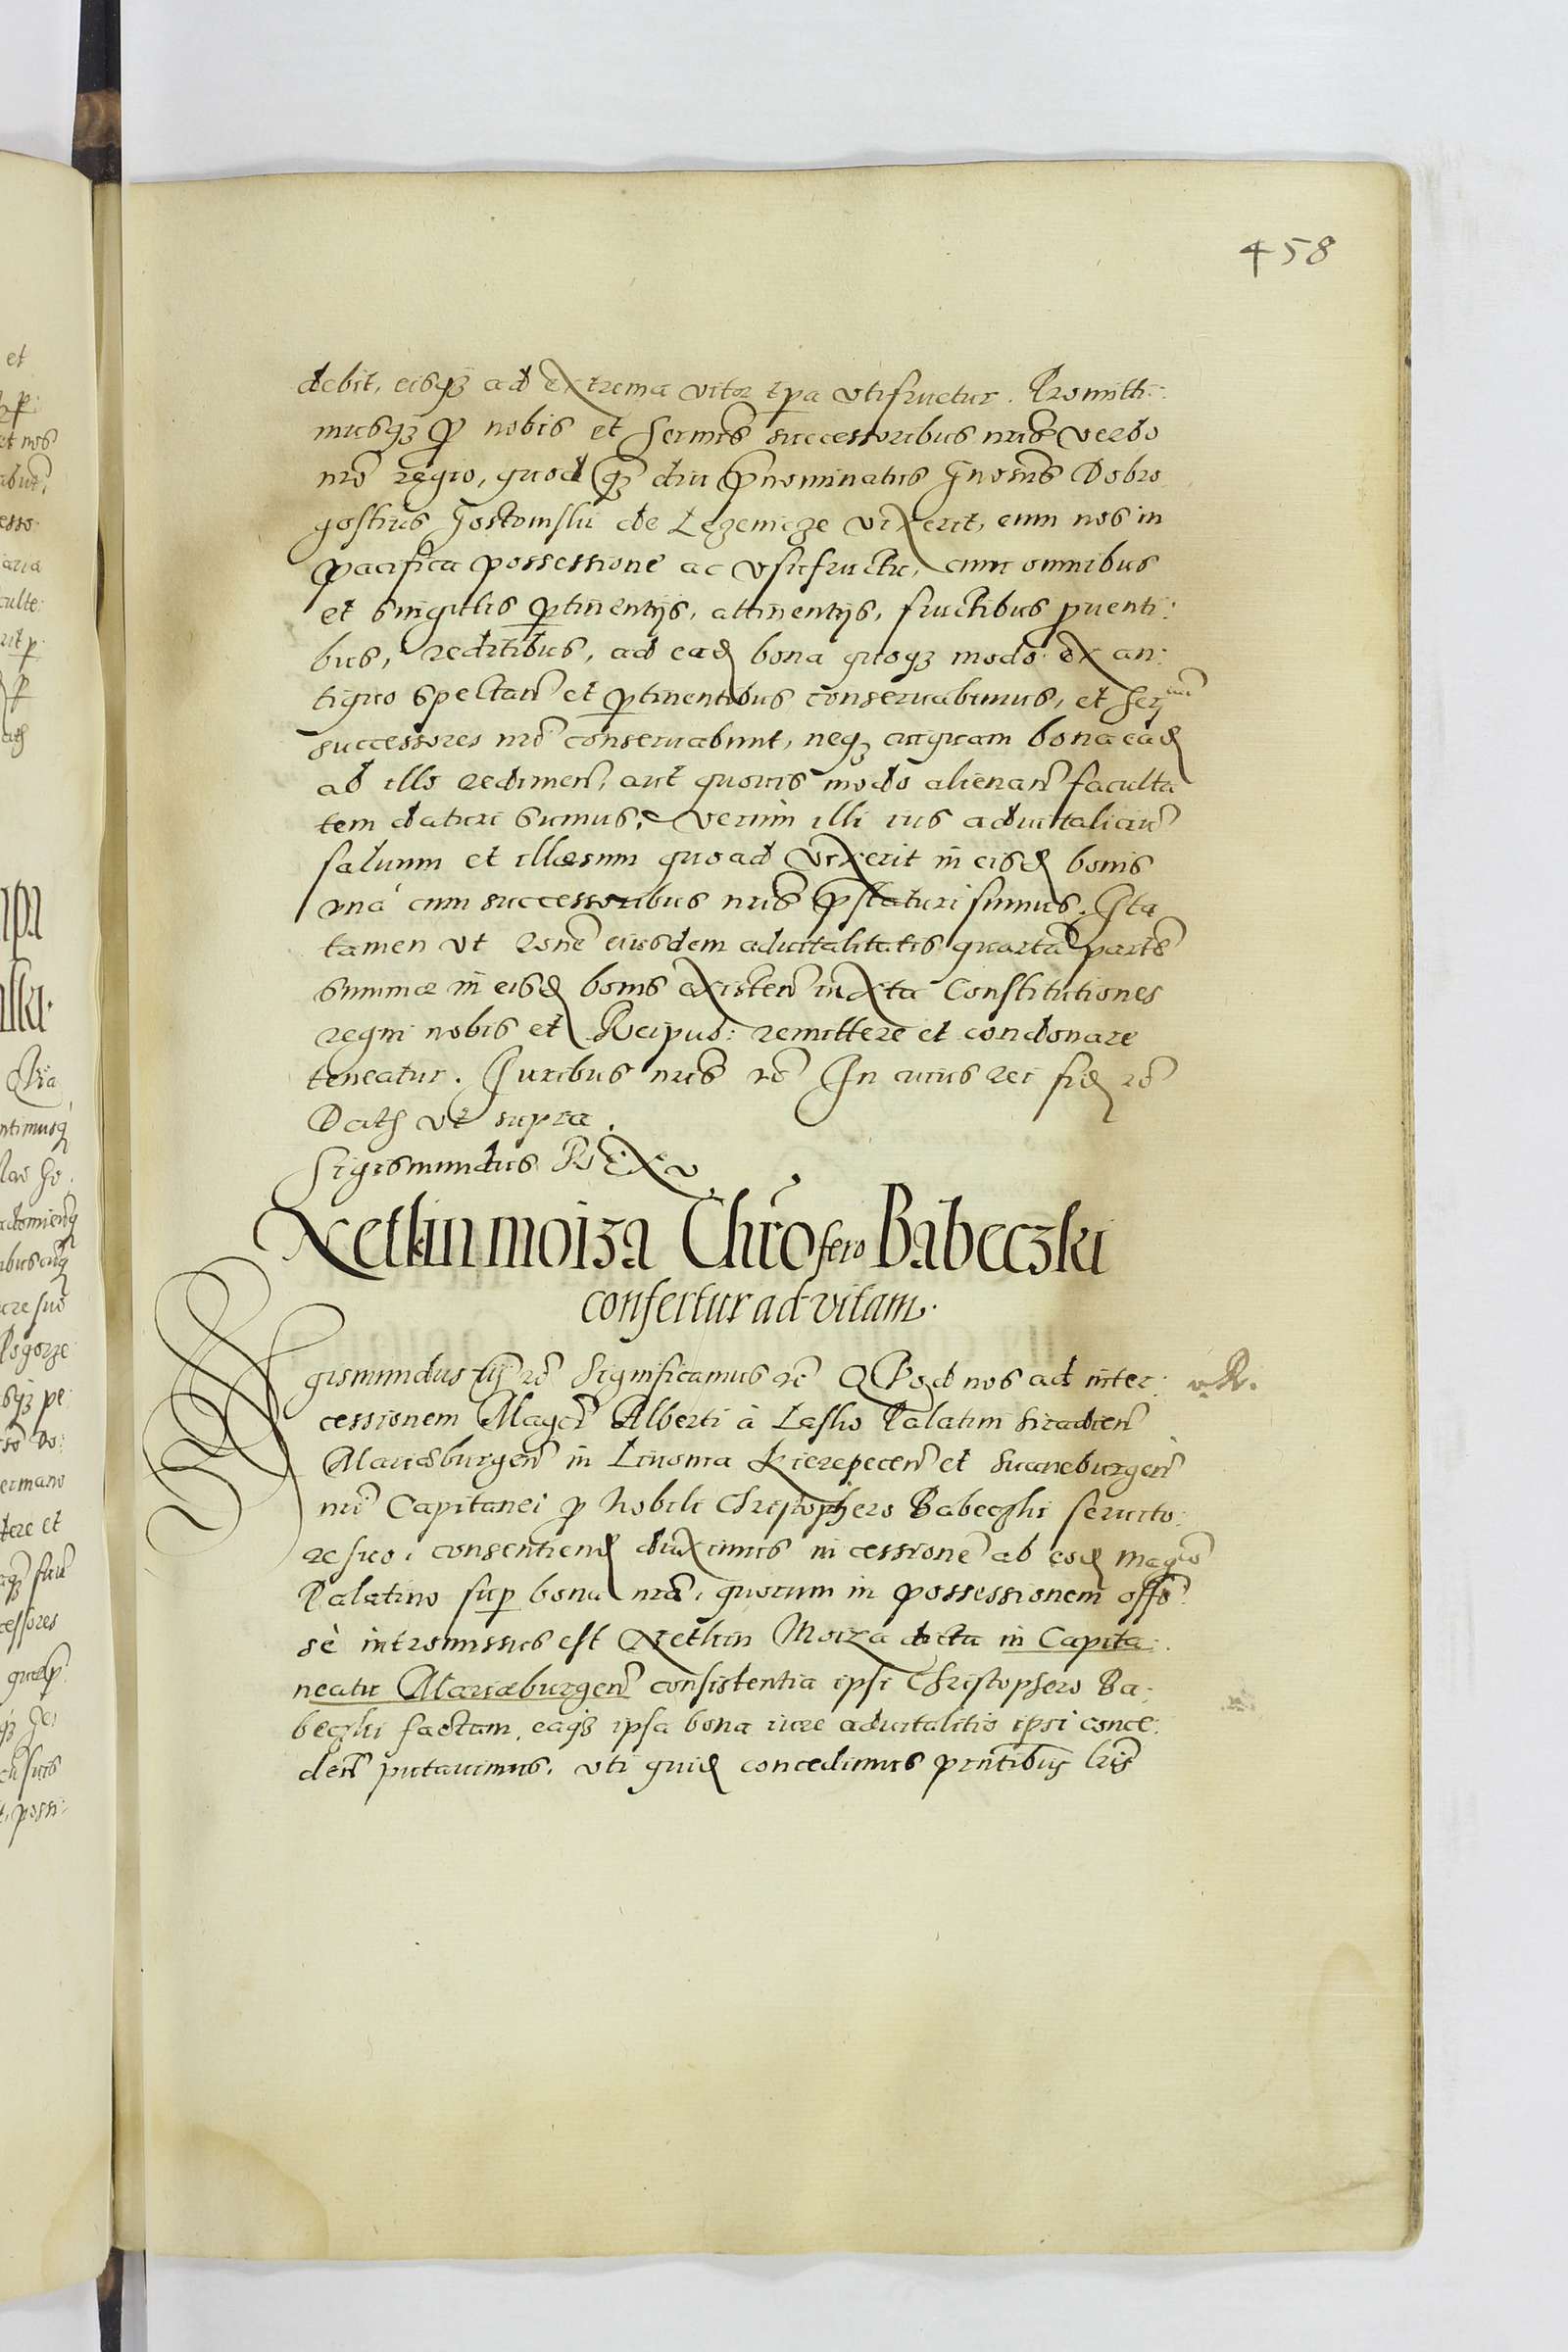 458
debit, eisq3 ad extrema vitæ tpa vtifruetur. Promitti:
musq3 p nobis et Sermis successoribus nris verbo
nro regio, quod q3 diu pnominatus Gnosus Dobro
gostius Gostomski de Lezenicze vixerit, eum nos in
pacifica possessione ac vsufructu, cum omnibus
et singulis ptinentijs, attinentijs, fructibus puenti:
bus, reditibus, ad ead bona quoq3 modo ex an:
tiquo spectan et ptinentibus conseruabimus, et Ser
successores nri conseruabunt, neq3 cuiquam bona ead
ab illo redimen, aut quouis modo alienan faculta
tem daturi sumus. verum illi ius aduitaliciu
saluum et illæsum quoad vixerit in eisd bonis
vna cum successoribus nris pstaturi sumus. Ita
tamen vt rone eiusdem aduitalitatis quarta parte
summæ in eisd bonis existen iuxta Constitutiones
regni nobis et Reipub: remittere et condonare
teneatur. Iuribus nris rc In cuius rei fid rc
Dat vt supra.
Sigismundus Rex
Xetkin moiza Chrōfero Babeczki
confertur ad vitam.
gismundus iij rc Significamus rc Quod nos ad inter:
cessionem Magci Alberti à Lasko Palatini Siradien
Mariæburgen in Liuonia Kierepecen et Swaneburgen
nri Capitanei p Nobili Christophero Babeczki seruito:
re suo, consentiend duximus in cessione ab eod Magco
Palatino sup bona nra, quorum in possessionem
se intromissus est Xetkin Moiza dicta in Capita:
neatu Mariæburgen consistentia ipsi Christophero Ba:
beczki factam, eaq3 ipsa bona iure aduitalitio ipsi conce:
den putauimus, vti quid concedimus pntibus lris